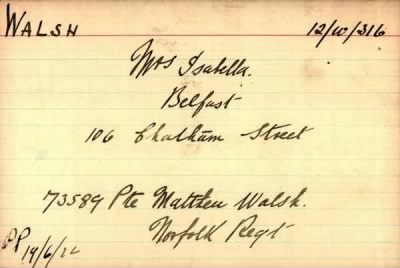 WALSH 12/W/316
Mrs Isabella.
Belfast
106 Chatham Street
73589 Pte Matthew Walsh.
Norfolk Regt
PP 19/6/22